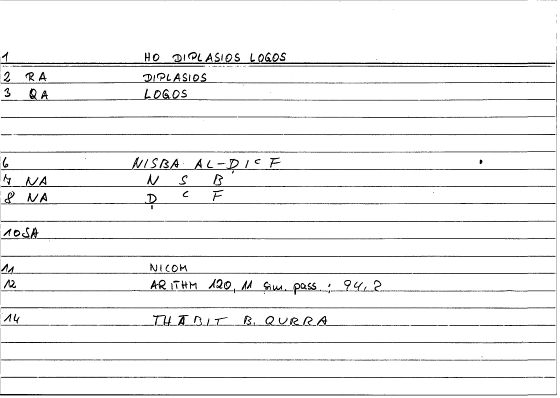 1 HO DIPLASIOS LOGOS
2 RA DIPLASIOS
3 QA LOGOS
6 NISBA AL-ḌIᶜF
7 NA N S B
8 NA Ḍ ᶜ F
10 SA
11 NICOM
12 ARITHM 120, 11 sim. pass. : 94, 2
14 THĀBIT B. QURRA